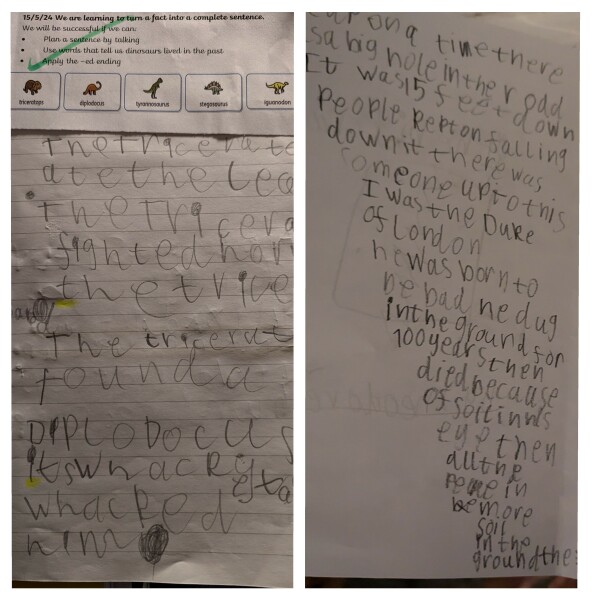 15/5/24 We are learning to turn a fact into a complete sentence.
We will be successful if we can:
• Plan a sentence by talking
• Use words that tell us dinosaurs lived in the past
• Apply the -ed ending
triceratops diplodocus tyrannosaurus stegosaurus iguanodon
The tricerate
ate the lea
The Tricera
fighted hor
the trice
The tricerat
found a
DIPLODOCUS
itswhacky
esta
whacked
him
on a time there
s a big hole in the road
It was 15 feet down
People kept on falling
down it there was
someone up to this
I was the Duke
of London
he was born to
be bad he dug
in the ground for
100 years then
died because
of soil in his
eye then
all the
in
be more
soil
in the
ground the